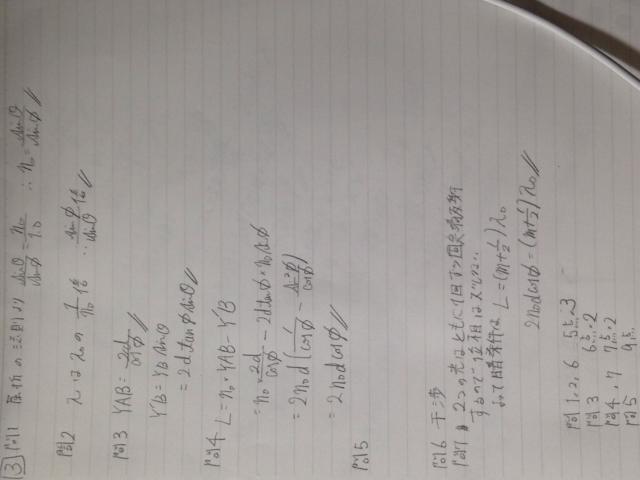 3 問1 屈折の法則より sinθ/sinφ = n₀/1.0 ∴ n₀ = sinθ/sinφ //
問2 λはλ₀の 1/n₀ 倍 ∴ sinφ/sinθ 倍 //
問3 YAB = 2d/cosφ //
Y'B = YB sinθ
= 2d tanφ sinθ //
問4 L = n₀・YAB - Y'B
= n₀ 2d/cosφ - 2d tanφ・n₀ sinφ
= 2n₀d (1/cosφ - sin²φ/cosφ)
= 2n₀d cosφ //
問5
問6 干渉
問7 2つの光はともに1回ずつ固定端反射
するので位相はズレない。
よって暗条件は L = (m+1/2)λ₀
2n₀d cosφ = (m+1/2)λ₀ //
問1, 2, 6 5点・3
問3 6点・2
問4, 7 7点・2
問5 9点